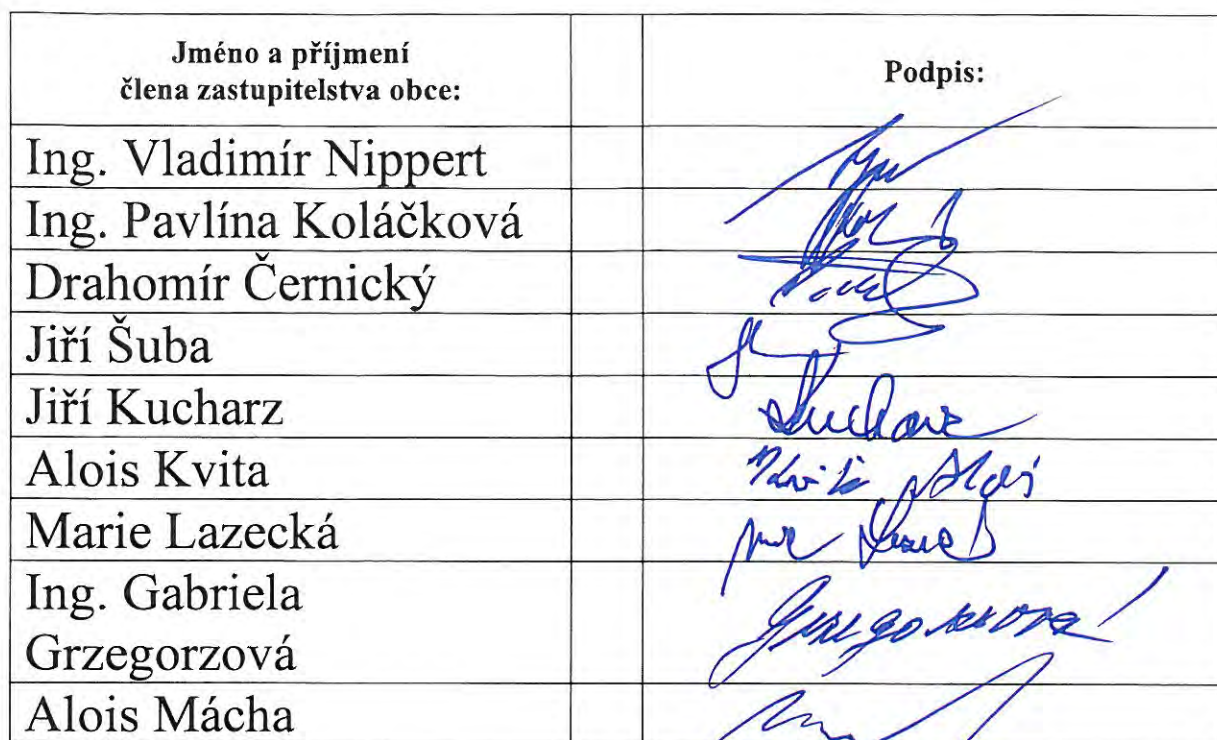 Jméno a příjmení
člena zastupitelstva obce:
Podpis:
Ing. Vladimír Nippert
Ing. Pavlína Koláčková
Drahomír Černický
Jiří Šuba
Jiří Kucharz
Kucharz
Alois Kvita
Kvita Alois
Marie Lazecká
Ing. Gabriela
Grzegorzová
Alois Mácha